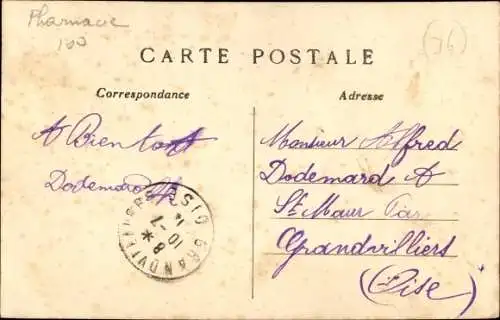 Pharmacie
100
(76)
CARTE POSTALE
Correspondance
Adresse
A Bientot
Dodemard
GRANDVILLIERS OISE
8 *
10 - 7
14
Monsieur Alfred
Dodemard A
St Maur Par
Grandvilliers
(Oise)